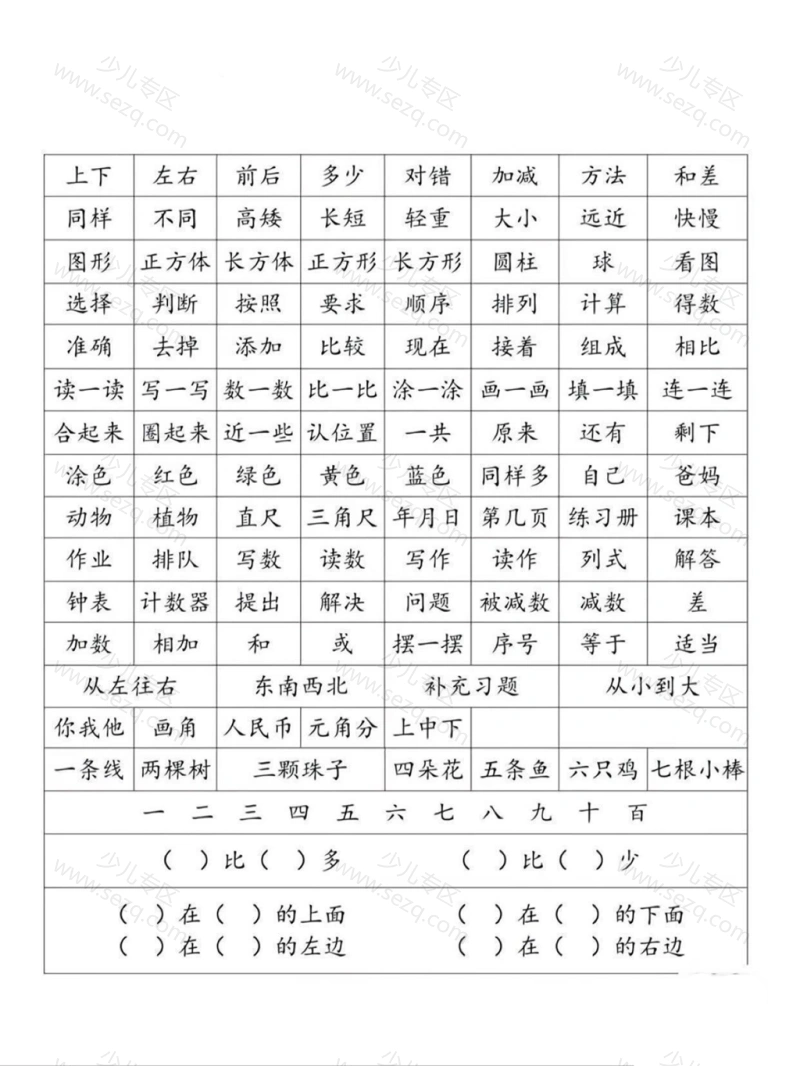 上下 左右 前后 多少 对错 加减 方法 和差
同样 不同 高矮 长短 轻重 大小 远近 快慢
图形 正方体 长方体 正方形 长方形 圆柱 球 看图
选择 判断 按照 要求 顺序 排列 计算 得数
准确 去掉 添加 比较 现在 接着 组成 相比
读一读 写一写 数一数 比一比 涂一涂 画一画 填一填 连一连
合起来 圈起来 近一些 认位置 一共 原来 还有 剩下
涂色 红色 绿色 黄色 蓝色 同样多 自己 爸妈
动物 植物 直尺 三角尺 年月日 第几页 练习册 课本
作业 排队 写数 读数 写作 读作 列式 解答
钟表 计数器 提出 解决 问题 被减数 减数 差
加数 相加 和 或 摆一摆 序号 等于 适当
从左往右 东南西北 补充习题 从小到大
你我他 画角 人民币 元角分 上中下
一条线 两棵树 三颗珠子 四朵花 五条鱼 六只鸡 七根小棒
一 二 三 四 五 六 七 八 九 十 百
（ ）比（ ）多 （ ）比（ ）少
（ ）在（ ）的上面 （ ）在（ ）的下面
（ ）在（ ）的左边 （ ）在（ ）的右边
少儿专区
www.sezq.com